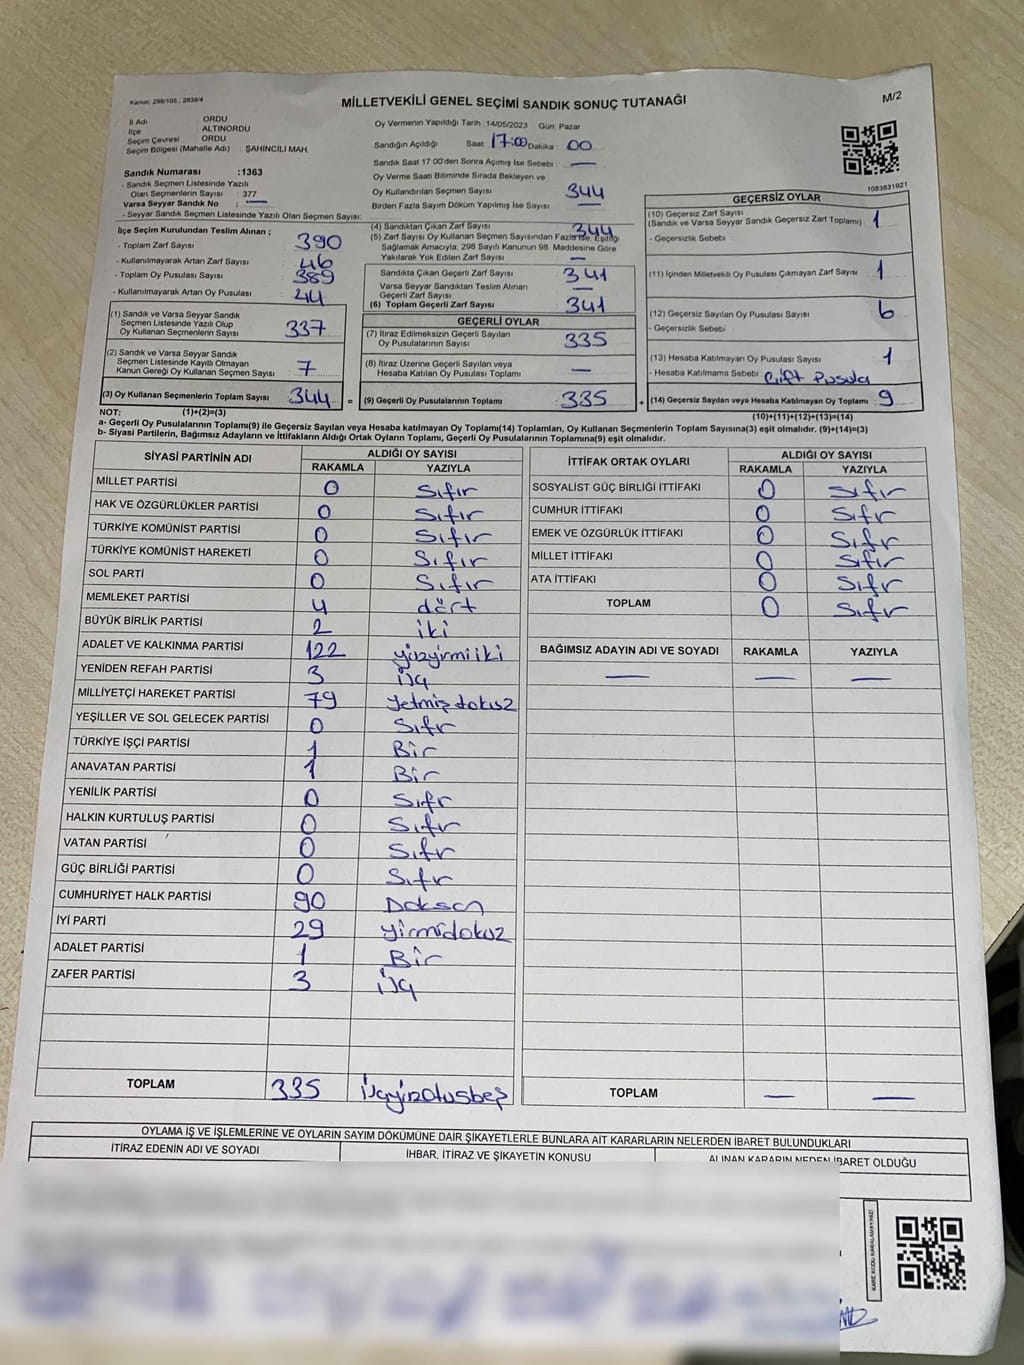 Kanun: 298/105 , 2839/4
MİLLETVEKİLİ GENEL SEÇİMİ SANDIK SONUÇ TUTANAĞI
M/2
İl Adı ORDU
İlçe ALTINORDU
Seçim Çevresi ORDU
Seçim Bölgesi (Mahalle Adı) : ŞAHİNCİLİ MAH.
Sandık Numarası :1363
- Sandık Seçmen Listesinde Yazılı
Olan Seçmenlerin Sayısı : 377
Varsa Seyyar Sandık No : —
- Seyyar Sandık Seçmen Listesinde Yazılı Olan Seçmen Sayısı:
İlçe Seçim Kurulundan Teslim Alınan ;
- Toplam Zarf Sayısı : 390
- Kullanılmayarak Artan Zarf Sayısı : 46
- Toplam Oy Pusulası Sayısı : 389
- Kullanılmayarak Artan Oy Pusulası : 44
(1) Sandık ve Varsa Seyyar Sandık
Seçmen Listesinde Yazılı Olup
Oy Kullanan Seçmenlerin Sayısı : 337
(2) Sandık ve Varsa Seyyar Sandık
Seçmen Listesinde Kayıtlı Olmayan
Kanun Gereği Oy Kullanan Seçmen Sayısı : 7
(3) Oy Kullanan Seçmenlerin Toplam Sayısı : 344 =
Oy Vermenin Yapıldığı Tarih :14/05/2023 Gün: Pazar
Sandığın Açıldığı Saat: 17:00 Dakika : 00
Sandık Saat 17:00'den Sonra Açımış İse Sebebi : —
Oy Verme Saati Bitiminde Sırada Bekleyen ve
Oy Kullandırılan Seçmen Sayısı : 344
Birden Fazla Sayım Döküm Yapılmış İse Sayısı : —
(4) Sandıktan Çıkan Zarf Sayısı : 344
(5) Zarf Sayısı Oy Kullanan Seçmen Sayısından Fazla İse, Eşitliği
Sağlamak Amacıyla, 298 Sayılı Kanunun 98. Maddesine Göre
Yakılarak Yok Edilen Zarf Sayısı : —
Sandıkta Çıkan Geçerli Zarf Sayısı : 341
Varsa Seyyar Sandıktan Teslim Alınan
Geçerli Zarf Sayısı : —
(6) Toplam Geçerli Zarf Sayısı : 341
GEÇERLİ OYLAR
(7) İtiraz Edilmeksizin Geçerli Sayılan
Oy Pusulalarının Sayısı : 335
(8) İtiraz Üzerine Geçerli Sayılan veya
Hesaba Katılan Oy Pusulası Toplamı : —
(9) Geçerli Oy Pusulalarının Toplamı : 335 +
1083831921
GEÇERSİZ OYLAR
(10) Geçersiz Zarf Sayısı
(Sandık ve Varsa Seyyar Sandık Geçersiz Zarf Toplamı) : 1
- Geçersizlik Sebebi :
(11) İçinden Milletvekili Oy Pusulası Çıkmayan Zarf Sayısı : 1
(12) Geçersiz Sayılan Oy Pusulası Sayısı : 6
- Geçersizlik Sebebi :
(13) Hesaba Katılmayan Oy Pusulası Sayısı : 1
- Hesaba Katılmama Sebebi : Çift Pusula
(14) Geçersiz Sayılan veya Hesaba Katılmayan Oy Toplamı : 9
NOT: (1)+(2)=(3)
(10)+(11)+(12)+(13)=(14)
a- Geçerli Oy Pusulalarının Toplamı(9) ile Geçersiz Sayılan veya Hesaba Katılmayan oy Toplamı(14) Toplamları, Oy Kullanan Seçmenlerin Toplam Sayısına(3) eşit olmalıdır. (9)+(14)=(3)
b- Siyasi Partilerin, Bağımsız Adayların ve İttifakların Aldığı Ortak Oyların Toplamı, Geçerli Oy Pusulalarının Toplamına(9) eşit olmalıdır.
SİYASİ PARTİNİN ADI ALDIĞI OY SAYISI
RAKAMLA YAZIYLA
MİLLET PARTİSİ 0 Sıfır
HAK VE ÖZGÜRLÜKLER PARTİSİ 0 Sıfır
TÜRKİYE KOMÜNİST PARTİSİ 0 Sıfır
TÜRKİYE KOMÜNİST HAREKETİ 0 Sıfır
SOL PARTİ 0 Sıfır
MEMLEKET PARTİSİ 4 dört
BÜYÜK BİRLİK PARTİSİ 2 iki
ADALET VE KALKINMA PARTİSİ 122 yüzyirmiiki
YENİDEN REFAH PARTİSİ 3 üç
MİLLİYETÇİ HAREKET PARTİSİ 79 yetmişdokuz
YEŞİLLER VE SOL GELECEK PARTİSİ 0 Sıfr
TÜRKİYE İŞÇİ PARTİSİ 1 Bir
ANAVATAN PARTİSİ 1 Bir
YENİLİK PARTİSİ 0 Sıfr
HALKIN KURTULUŞ PARTİSİ 0 Sıfr
VATAN PARTİSİ 0 Sıfr
GÜÇ BİRLİĞİ PARTİSİ 0 Sıfr
CUMHURİYET HALK PARTİSİ 90 Doksan
İYİ PARTİ 29 yirmidokuz
ADALET PARTİSİ 1 Bir
ZAFER PARTİSİ 3 üç
TOPLAM 335 üçyüzotuzbeş
İTTİFAK ORTAK OYLARI ALDIĞI OY SAYISI
RAKAMLA YAZIYLA
SOSYALİST GÜÇ BİRLİĞİ İTTİFAKI 0 Sıfır
CUMHUR İTTİFAKI 0 Sıfr
EMEK VE ÖZGÜRLÜK İTTİFAKI 0 Sıfr
MİLLET İTTİFAKI 0 Sıfır
ATA İTTİFAKI 0 Sıfr
TOPLAM 0 Sıfr
BAĞIMSIZ ADAYIN ADI VE SOYADI RAKAMLA YAZIYLA
— — —
TOPLAM — —
OYLAMA İŞ VE İŞLEMLERİNE VE OYLARIN SAYIM DÖKÜMÜNE DAİR ŞİKAYETLERLE BUNLARA AİT KARARLARIN NELERDEN İBARET BULUNDUKLARI
İTİRAZ EDENİN ADI VE SOYADI İHBAR, İTİRAZ VE ŞİKAYETİN KONUSU ALINAN KARARIN NEDEN İBARET OLDUĞU
KARE KODU KARALAMAYINIZ!